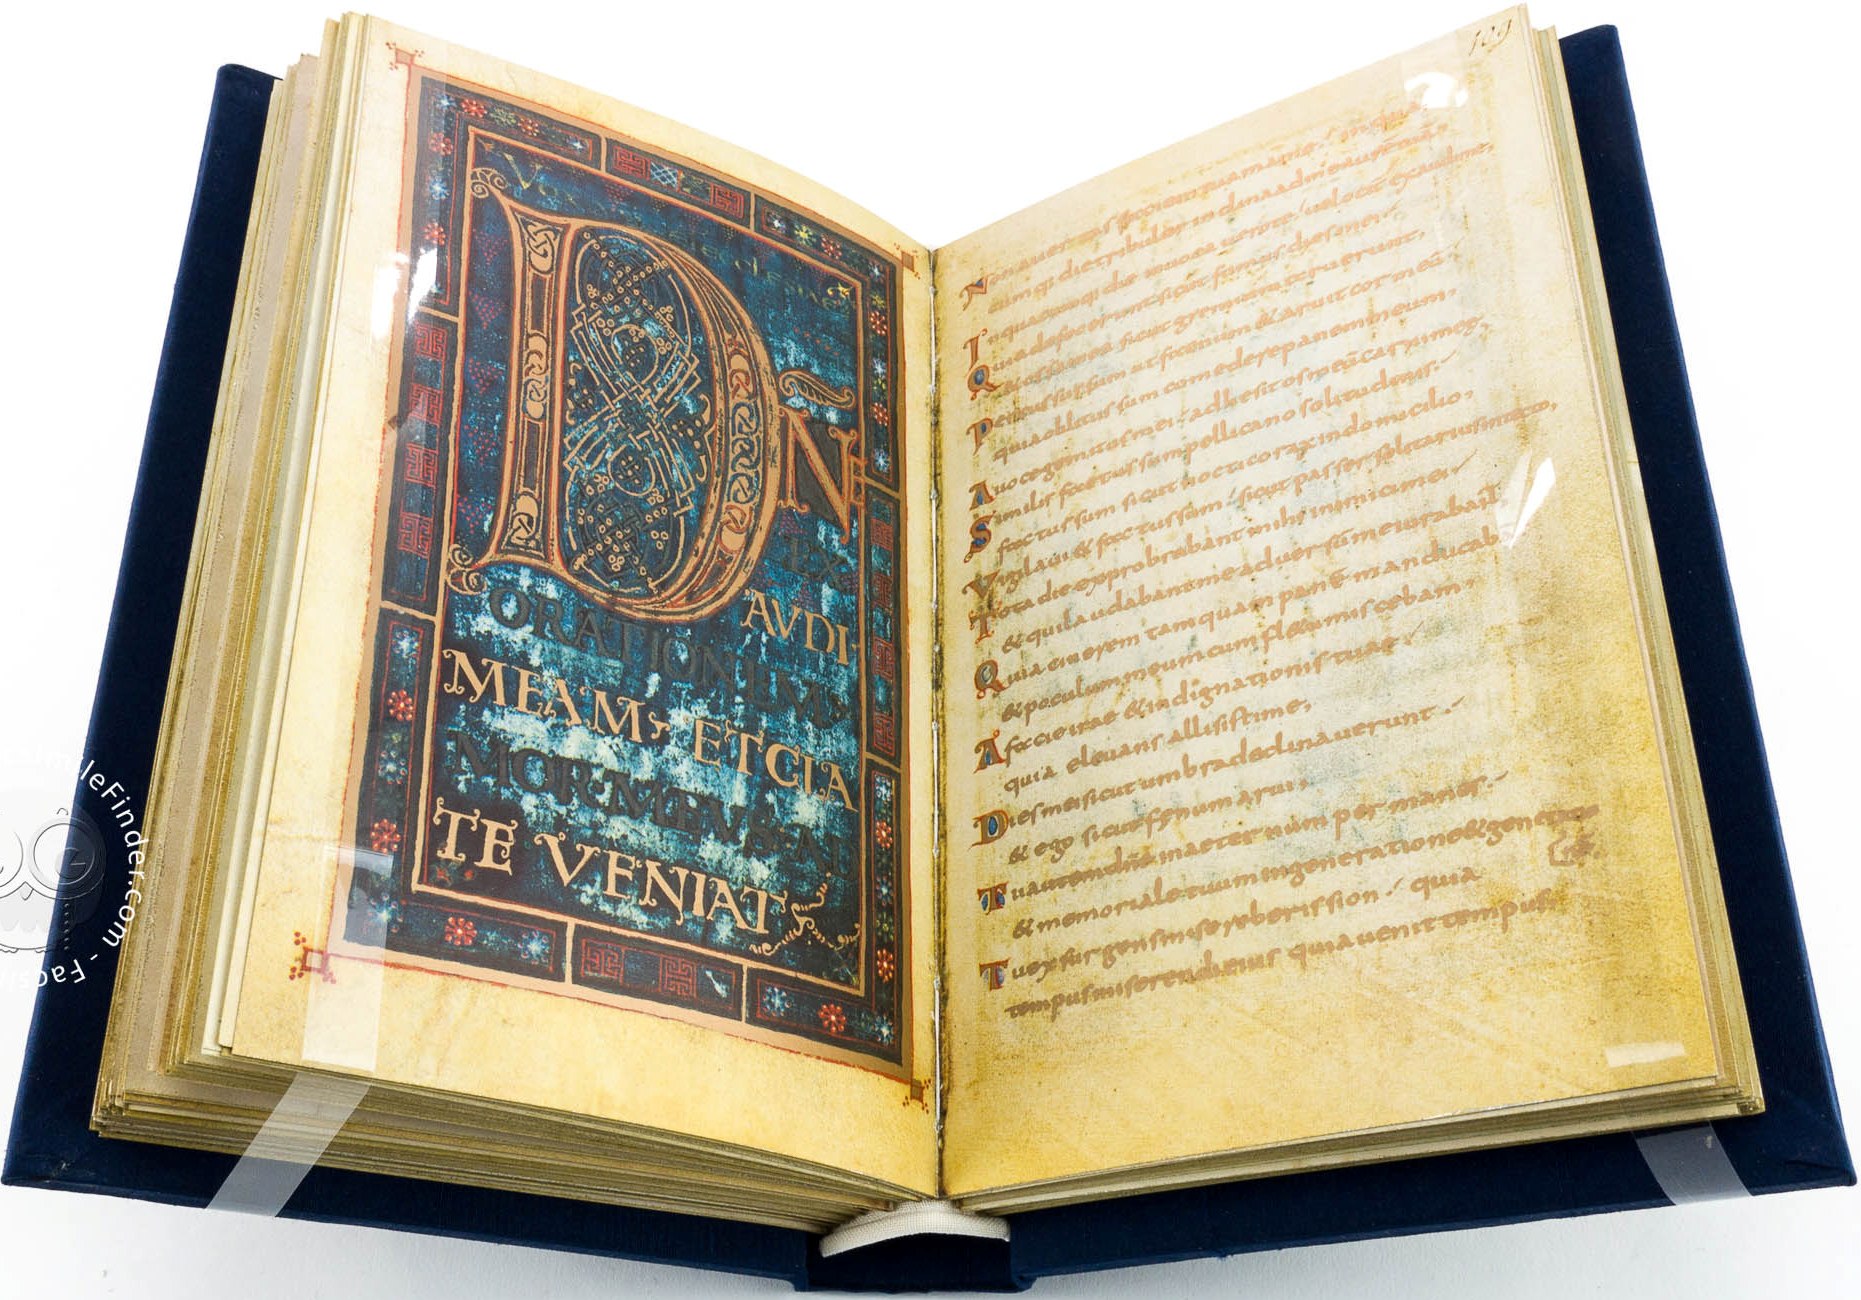 DNE
EX
AUDI
ORATIONEM
MEAM; ET CLA
MOR MEUS A
TE VENIAT
109
Non auertas faciem tuam a me / inqua
cumq; die tribulor inclina ad me aurem tuam,
Inquacumq; die inuocauero te / uelociter exaudi me,
Quia defecerunt sicut fumus dies mei /
& ossa mea sicut gremium aruerunt,
Percussus sum ut faenum & aruit cor meū /
quia oblitus sum comedere panem meum,
A uoce gemitus mei / adhesit os meū carni meę,
Similis factus sum pellicano solitudinis /
factus sum sicut nocticorax in domicilio,
Vigilaui & factus sum / sicut passer solitarius in tecto,
Tota die exprobrabant mihi inimici mei /
& qui laudabant me aduersū me iurabant,
Quia cinerem tamquam panē manducabā
& poculum meum cum fletu miscebam,
A facie irae & indignationis tuae /
quia eleuans allisisti me,
Dies mei sicut umbra declinauerunt /
& ego sicut fenum arui,
Tu autem dñe in aeternum permanes /
& memoriale tuum in generatione & generatione
Tu exsurgens misereberis sion / quia
tempus miserendi eius quia uenit tempus,
FacsimileFinder.com - Facsi